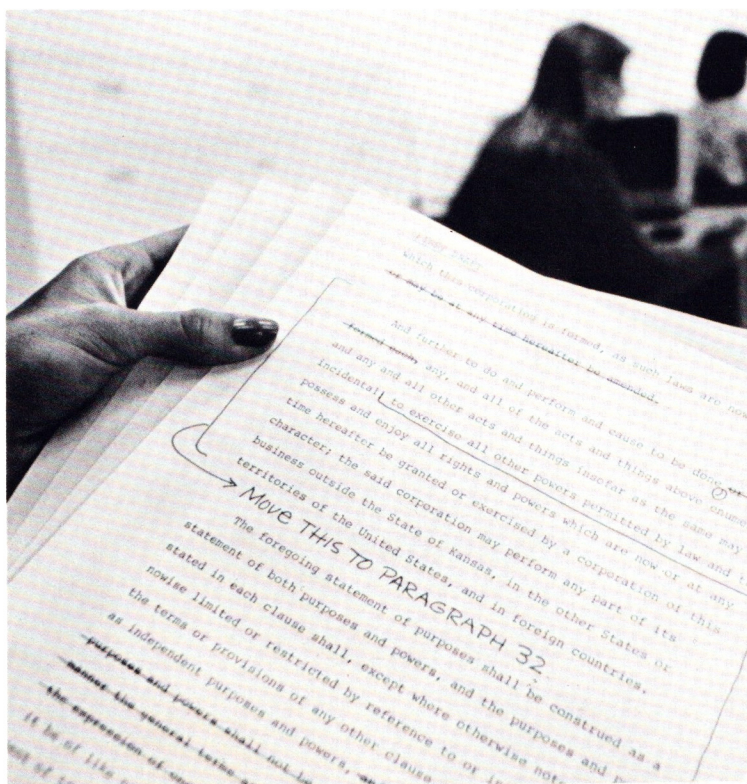 which this corporating is formed, as such laws are now
or may be at any time hereafter be amended.
And further to do and perform and cause to be done
formed each, any, and all of the acts and things above enume
and any and all other acts and things insofar as the same may
incidental to exercise all other powers permitted by law and t
possess and enjoy all rights and powers which are now or at any
time hereafter be granted or exercised by a corporation of this
character; the said corporation may perform any part of its
business outside the State of Kansas, in the other States or
territories of the United States, and in foreign countries.
MOVE THIS TO PARAGRAPH 32
The foregoing statement of purposes shall be construed as a
statement of both purposes and powers, and the purposes and
stated in each clause shall, except where otherwise note
nowise limited or restricted by reference to or in
the terms or provisions of any other clause
as independent purposes and powers,
purposes and powers shall not be
manner the general terms
the expression of
be of like